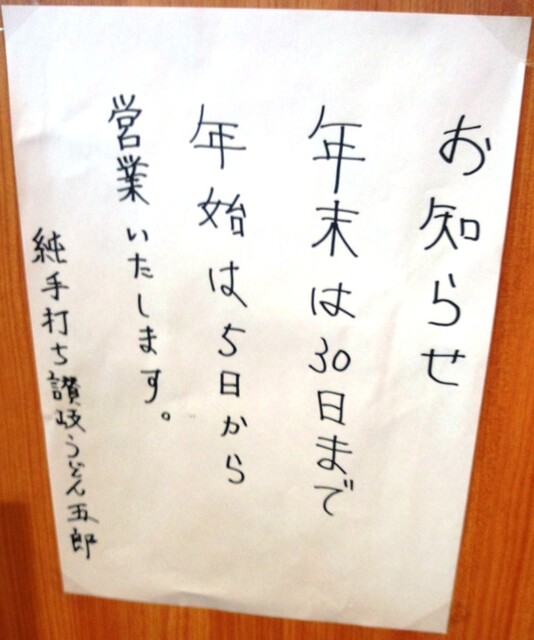 お知らせ
年末は30日まで
年始は5日から
営業いたします。
純手打ち讃岐うどん五郎